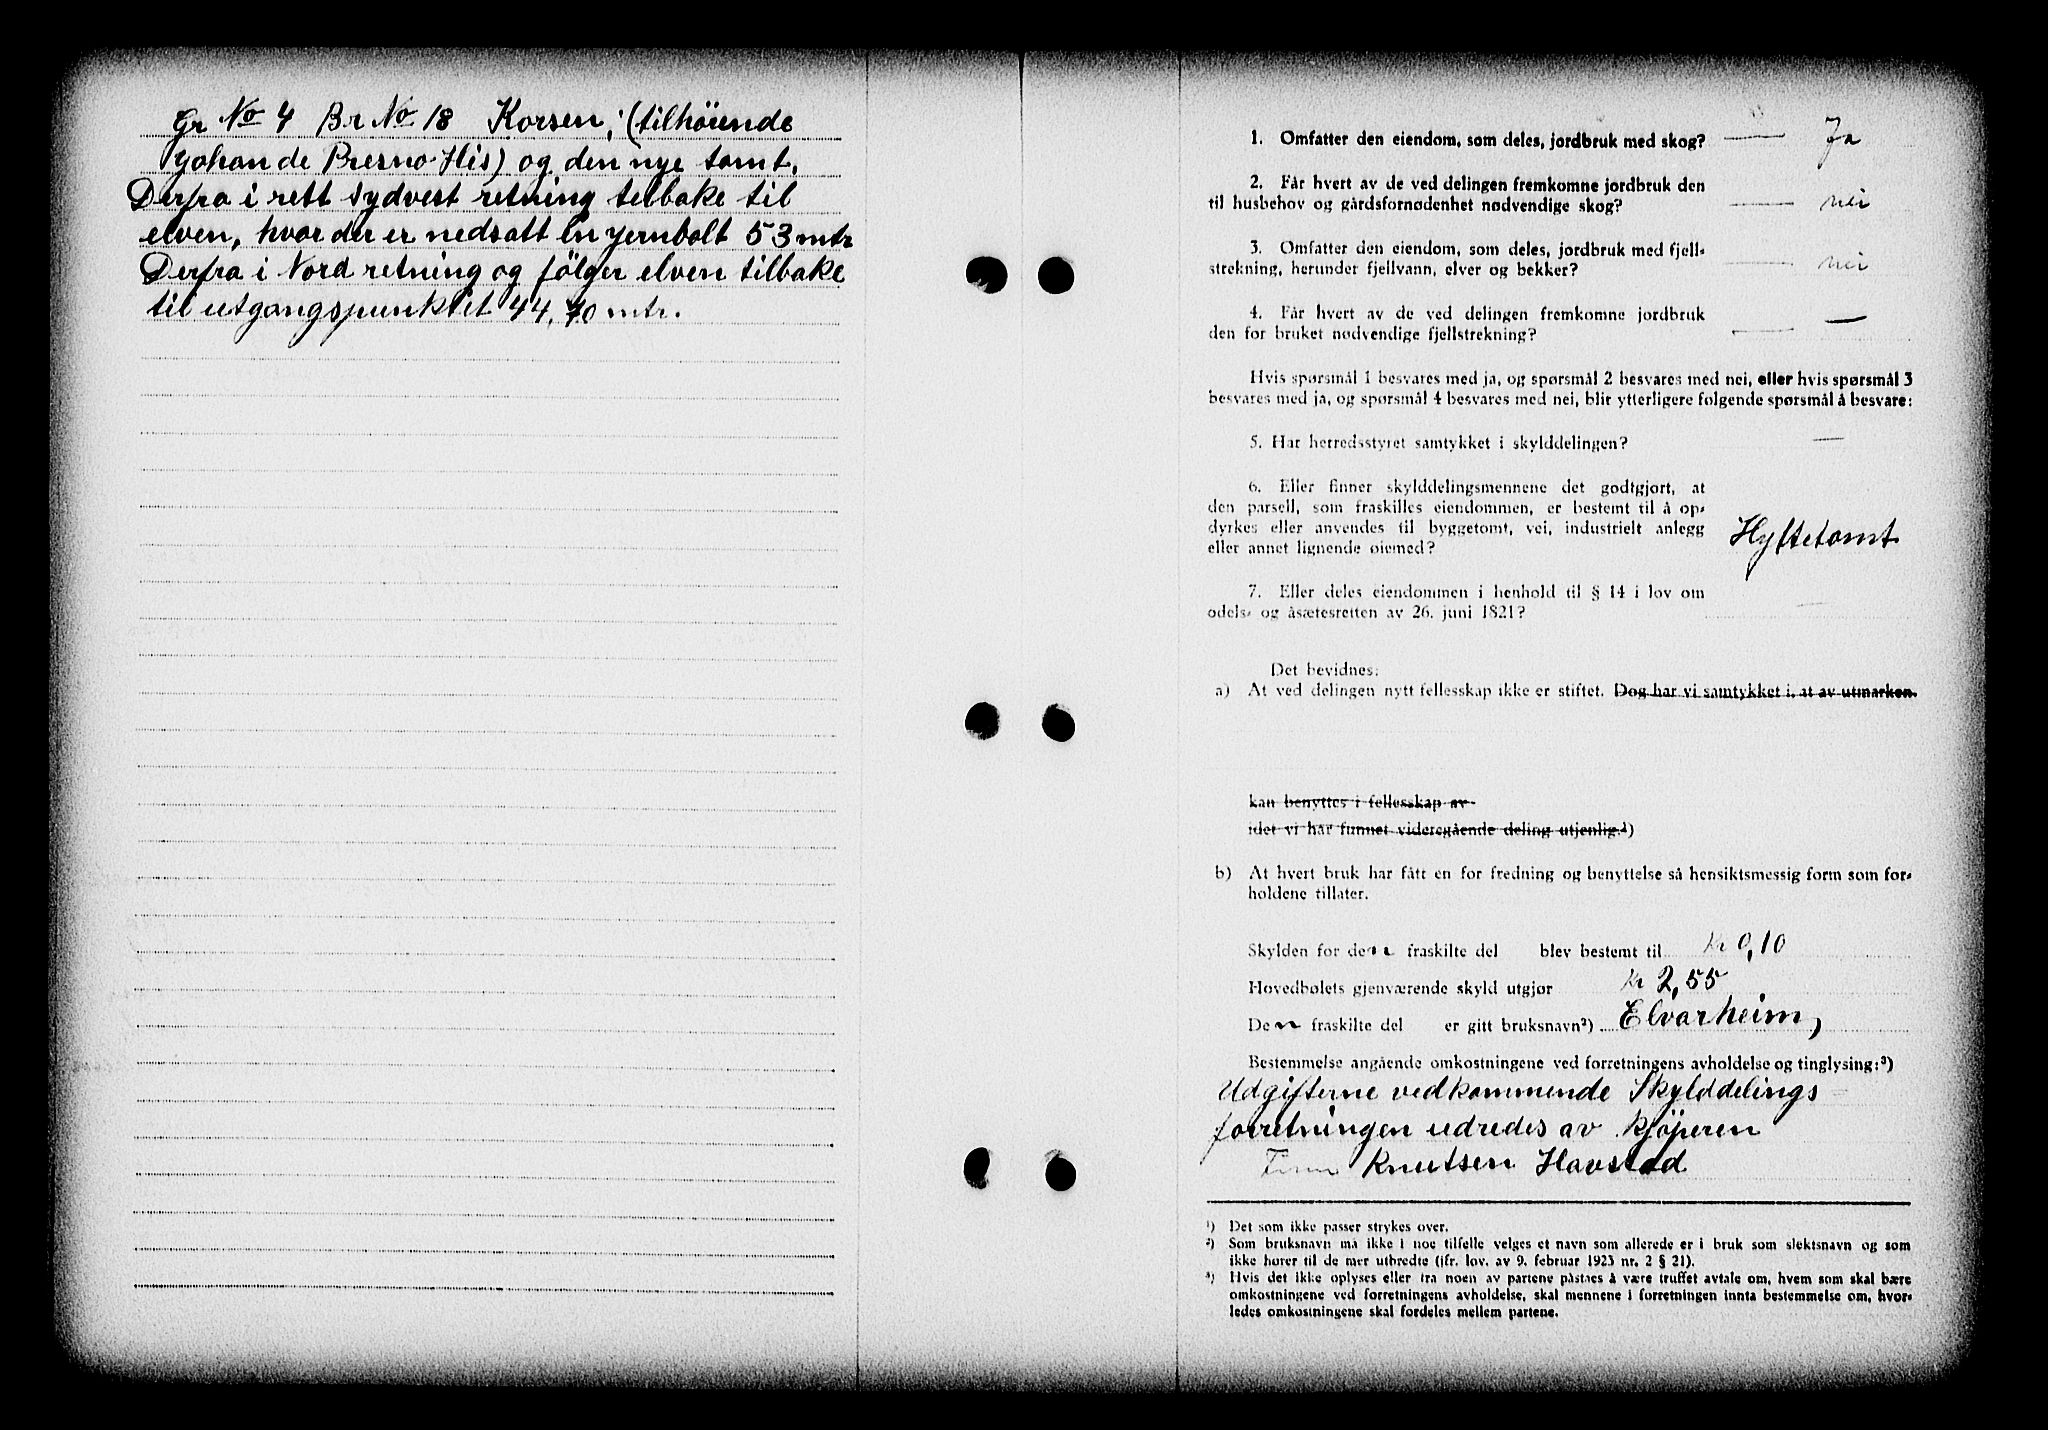 Gr No 4 Br No 18 Korsen, (tilhöiende
Johan de Presno His) og den nye tomt.
Derfra i rett sydvest retning telbake til
elven, hvor der er nedsatt en jernbolt 53 mtr
Derfra i Nord retning og fölger elven tilbake
til utgangspunktet 44,70 mtr.
1. Omfatter den eiendom, som deles, jordbruk med skog? — Ja
2. Får hvert av de ved delingen fremkomne jordbruk den
til husbehov og gårdsfornødenhet nødvendige skog? — nei
3. Omfatter den eiendom, som deles, jordbruk med fjell-
strekning, herunder fjellvann, elver og bekker? — nei
4. Får hvert av de ved delingen fremkomne jordbruk
den for bruket nødvendige fjellstrekning? — —
Hvis spørsmål 1 besvares med ja, og spørsmål 2 besvares med nei, eller hvis spørsmål 3
besvares med ja, og spørsmål 4 besvares med nei, blir ytterligere følgende spørsmål å besvare:
5. Har herredsstyret samtykket i skylddelingen? —
6. Eller finner skylddelingsmennene det godtgjort, at
den parsell, som fraskilles eiendommen, er bestemt til å op-
dyrkes eller anvendes til byggetomt, vei, industrielt anlegg
eller annet lignende øiemed? Hyttetomt
7. Eller deles eiendommen i henhold til § 14 i lov om
odels- og åsætesretten av 26. juni 1821? —
Det bevidnes:
a) At ved delingen nytt fellesskap ikke er stiftet. Dog har vi samtykket i, at av utmarken
kan benyttes i fellesskap av
idet vi har funnet videregående deling utjenlig.¹)
b) At hvert bruk har fått en for fredning og benyttelse så hensiktsmessig form som for-
holdene tillater.
Skylden for den fraskilte del blev bestemt til Kr 0,10
Hovedbølets gjenværende skyld utgjør Kr 2,55
Den fraskilte del er gitt bruksnavn²) Elvarheim,
Bestemmelse angående omkostningene ved forretningens avholdelse og tinglysing:³)
Udgifterne vedkommende Skylddelings
forretningen udredes av kjøperen
Finn Knutsen Havstad
¹) Det som ikke passer strykes over.
²) Som bruksnavn må ikke i noe tilfelle velges et navn som allerede er i bruk som slektsnavn og som
ikke hører til de mer utbredte (jfr. lov. av 9. februar 1923 nr. 2 § 21).
³) Hvis det ikke oplyses eller fra noen av partene påstaes å være truffet avtale om, hvem som skal bære
omkostningene ved forretningens avholdelse, skal mennene i forretningen innta bestemmelse om, hvor-
ledes omkostningene skal fordeles mellem partene.